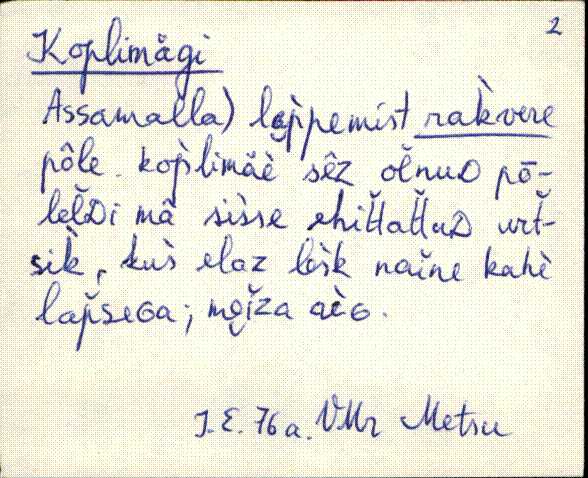 2
Koplimägi
Assamalla) lõppemist rakvere
pôle. koplimäè sêz olnuD pō-
lelDi mâ sisse ehitattuD urt-
sik, kus elaz lèsk naine kahè
lapseGa; mõiza aèG.
J. E. 76 a. VMr Metsu